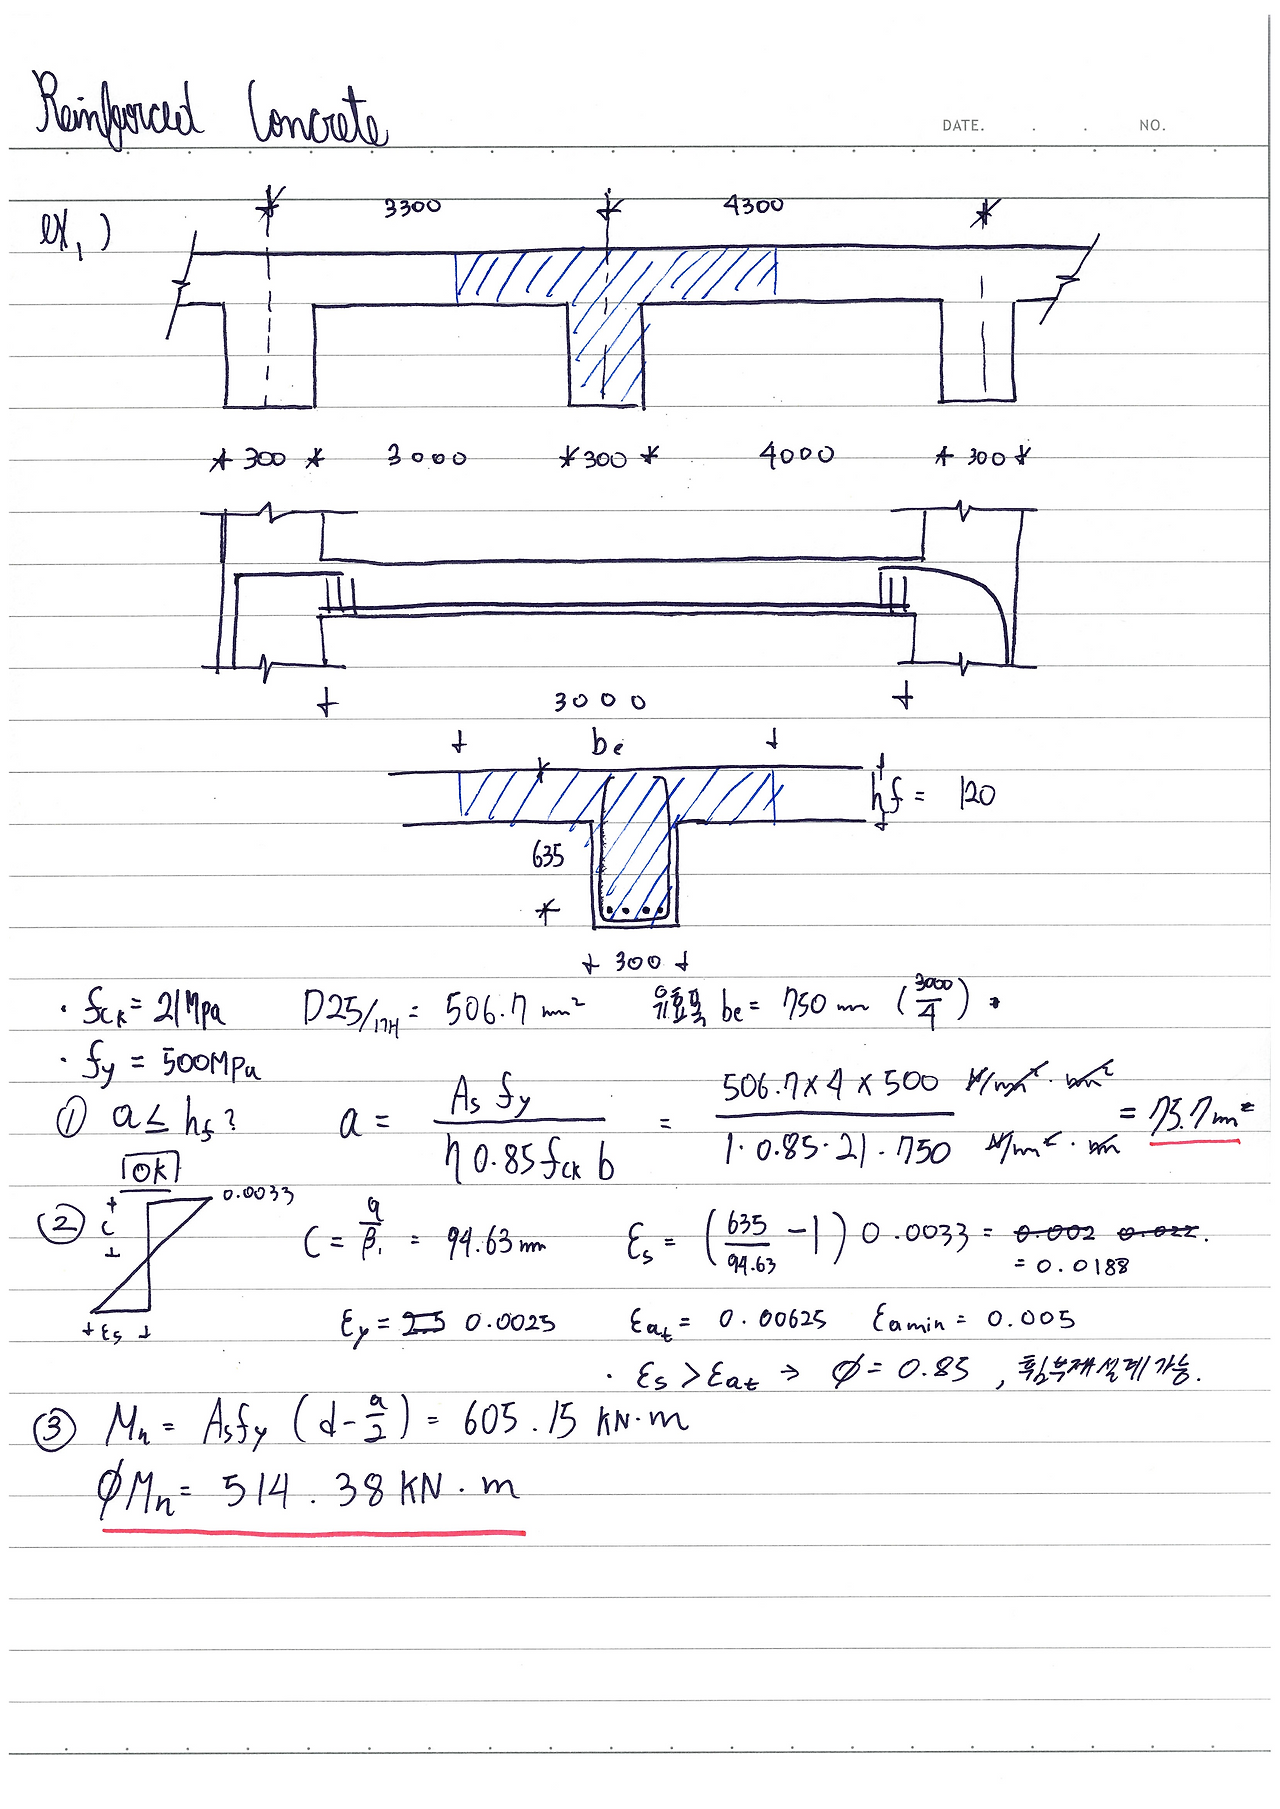 Reinforced Concrete
DATE. . . NO.
ex,)
3300 4300
300 3000 300 4000 300
3000
be
hf = 120
635
300
· fck = 21Mpa D25/1개 = 506.7 mm² 유효폭 be = 750 mm (3000/4)
· fy = 500MPa
① a ≤ hf? a = As fy / η 0.85 fck b = 506.7 x 4 x 500 N/mm² · mm² / 1 · 0.85 · 21 · 750 N/mm² · mm = 75.7 mm
OK
② c 0.0033 εs C = a/β₁ = 94.63 mm εs = (635/94.63 - 1) 0.0033 = 0.002 0.022.
= 0.0188
εy = 2.5 0.0025 εat = 0.00625 εamin = 0.005
· εs > εat → ϕ = 0.85 , 휨부재 설계 가능.
③ Mn = Asfy (d - a/2) = 605.15 KN·m
ϕMn = 514.38 KN·m